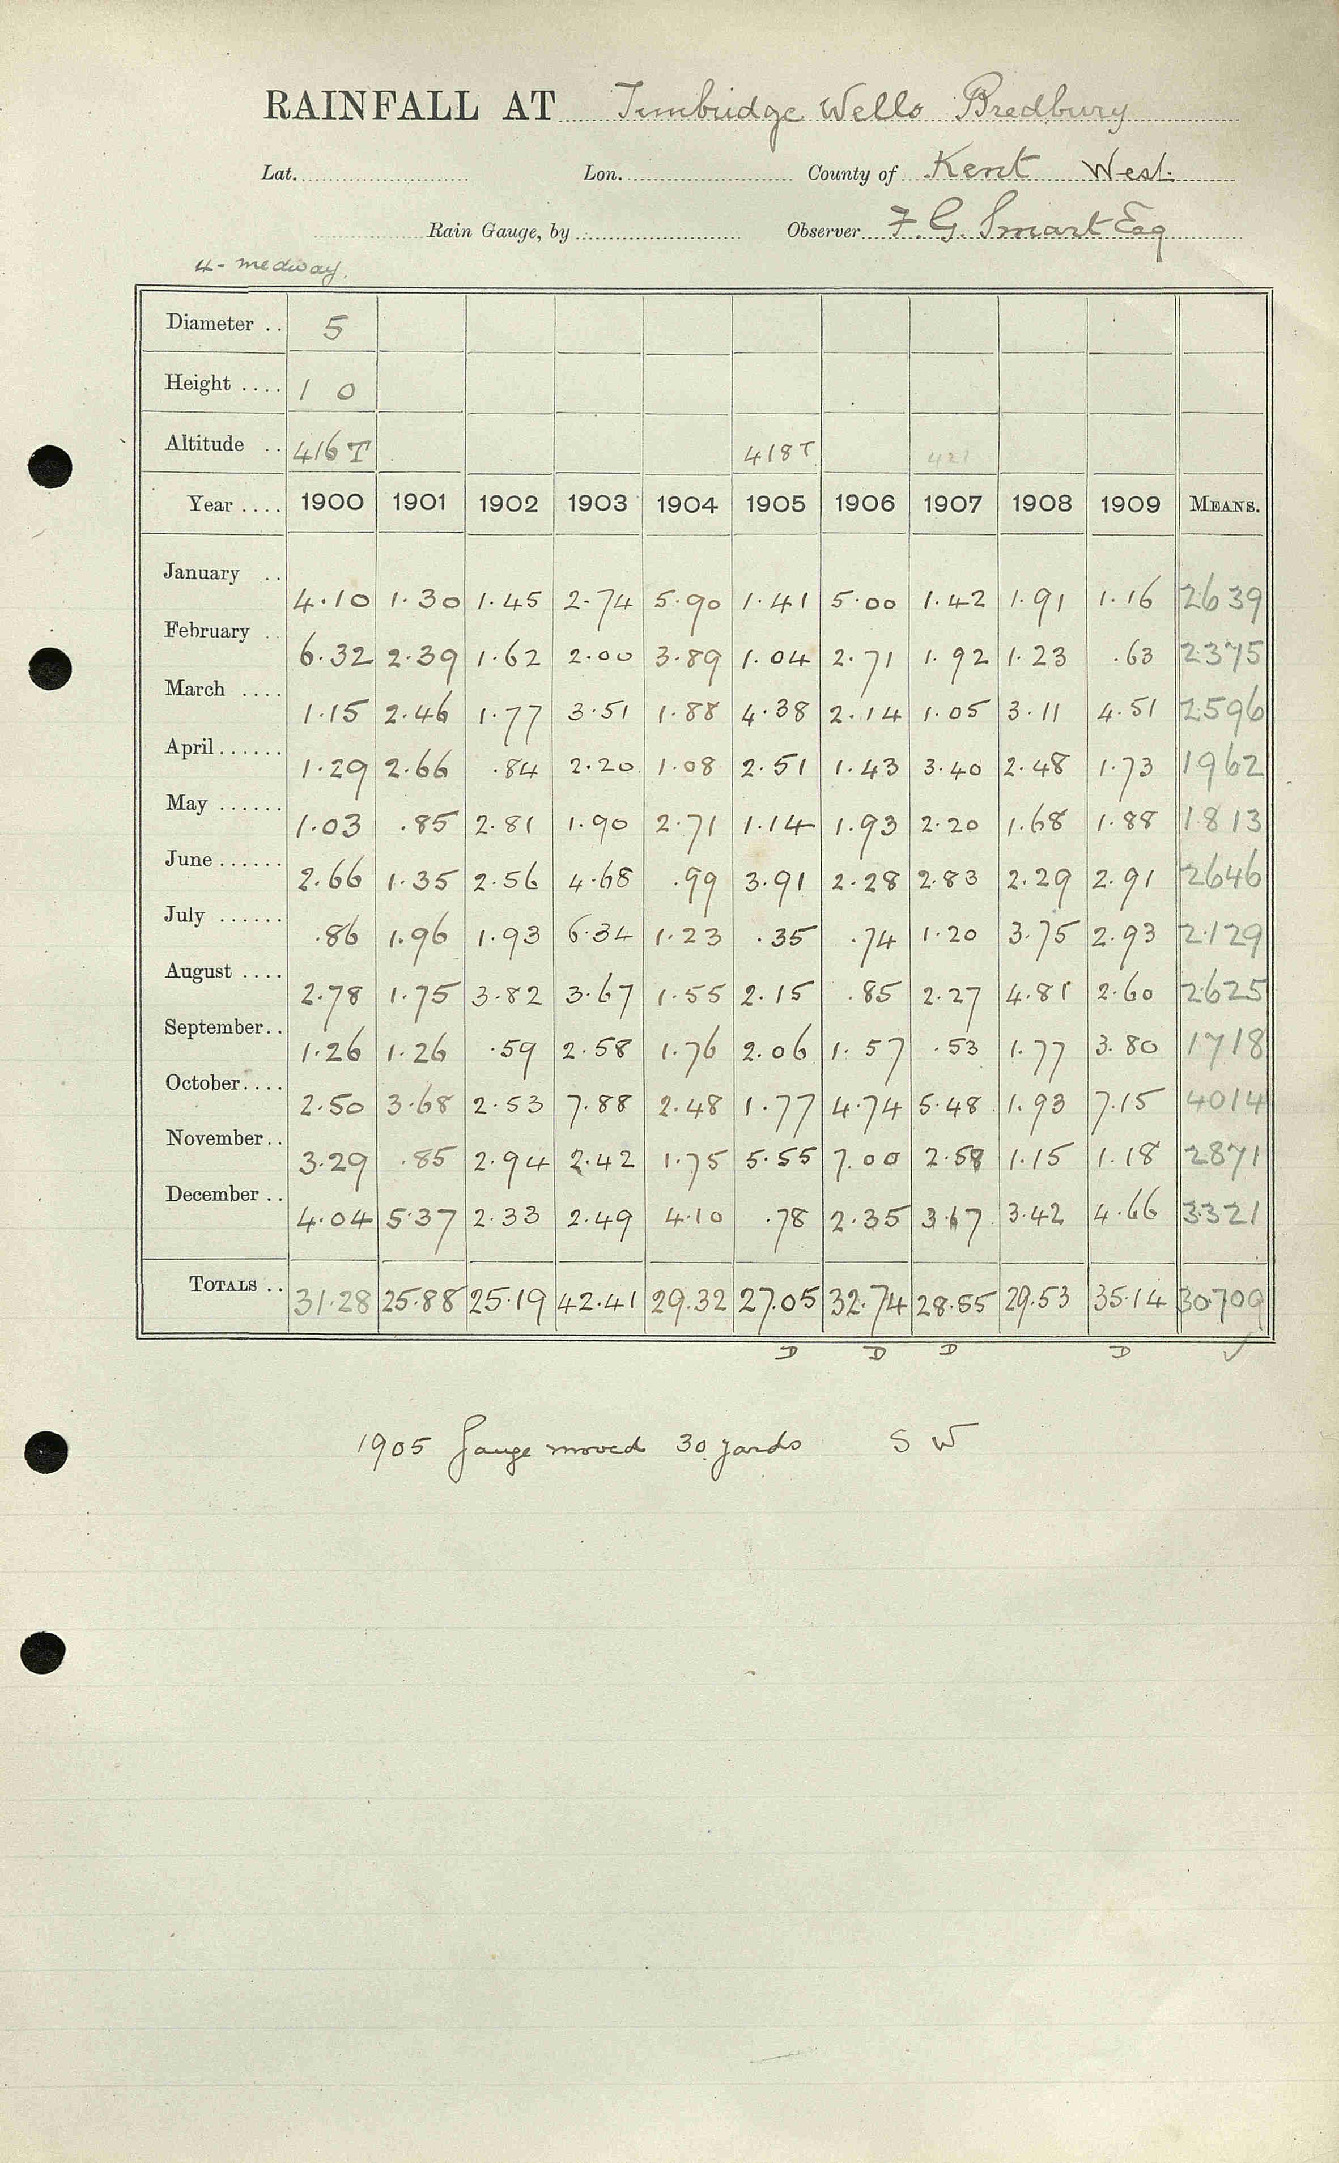 RAINFALL AT Tunbridge Wells Bredbury
Lat. Lon. County of Kent West.
Rain Gauge, by Observer F. G. Smart Esq
4 - medway.
Diameter .. 5
Height .... 1 0
Altitude .. 416 T 418 T 421
Year .... 1900 1901 1902 1903 1904 1905 1906 1907 1908 1909 MEANS.
January .. 4.10 1.30 1.45 2.74 5.90 1.41 5.00 1.42 1.91 1.16 2639
February .. 6.32 2.39 1.62 2.00 3.89 1.04 2.71 1.92 1.23 .63 2375
March .... 1.15 2.46 1.77 3.51 1.88 4.38 2.14 1.05 3.11 4.51 2596
April ...... 1.29 2.66 .84 2.20 1.08 2.51 1.43 3.40 2.48 1.73 1962
May ...... 1.03 .85 2.81 1.90 2.71 1.14 1.93 2.20 1.68 1.88 1813
June ...... 2.66 1.35 2.56 4.68 .99 3.91 2.28 2.83 2.29 2.91 2646
July ...... .86 1.96 1.93 6.34 1.23 .35 .74 1.20 3.75 2.93 2129
August .... 2.78 1.75 3.82 3.67 1.55 2.15 .85 2.27 4.81 2.60 2625
September .. 1.26 1.26 .59 2.58 1.76 2.06 1.57 .53 1.77 3.80 1718
October .... 2.50 3.68 2.53 7.88 2.48 1.77 4.74 5.48 1.93 7.15 4014
November .. 3.29 .85 2.94 2.42 1.75 5.55 7.00 2.58 1.15 1.18 2871
December .. 4.04 5.37 2.33 2.49 4.10 .78 2.35 3.67 3.42 4.66 3321
TOTALS .. 31.28 25.88 25.19 42.41 29.32 27.05 32.74 28.55 29.53 35.14 30.709
D D D D
1905 Gauge moved 30 yards S W